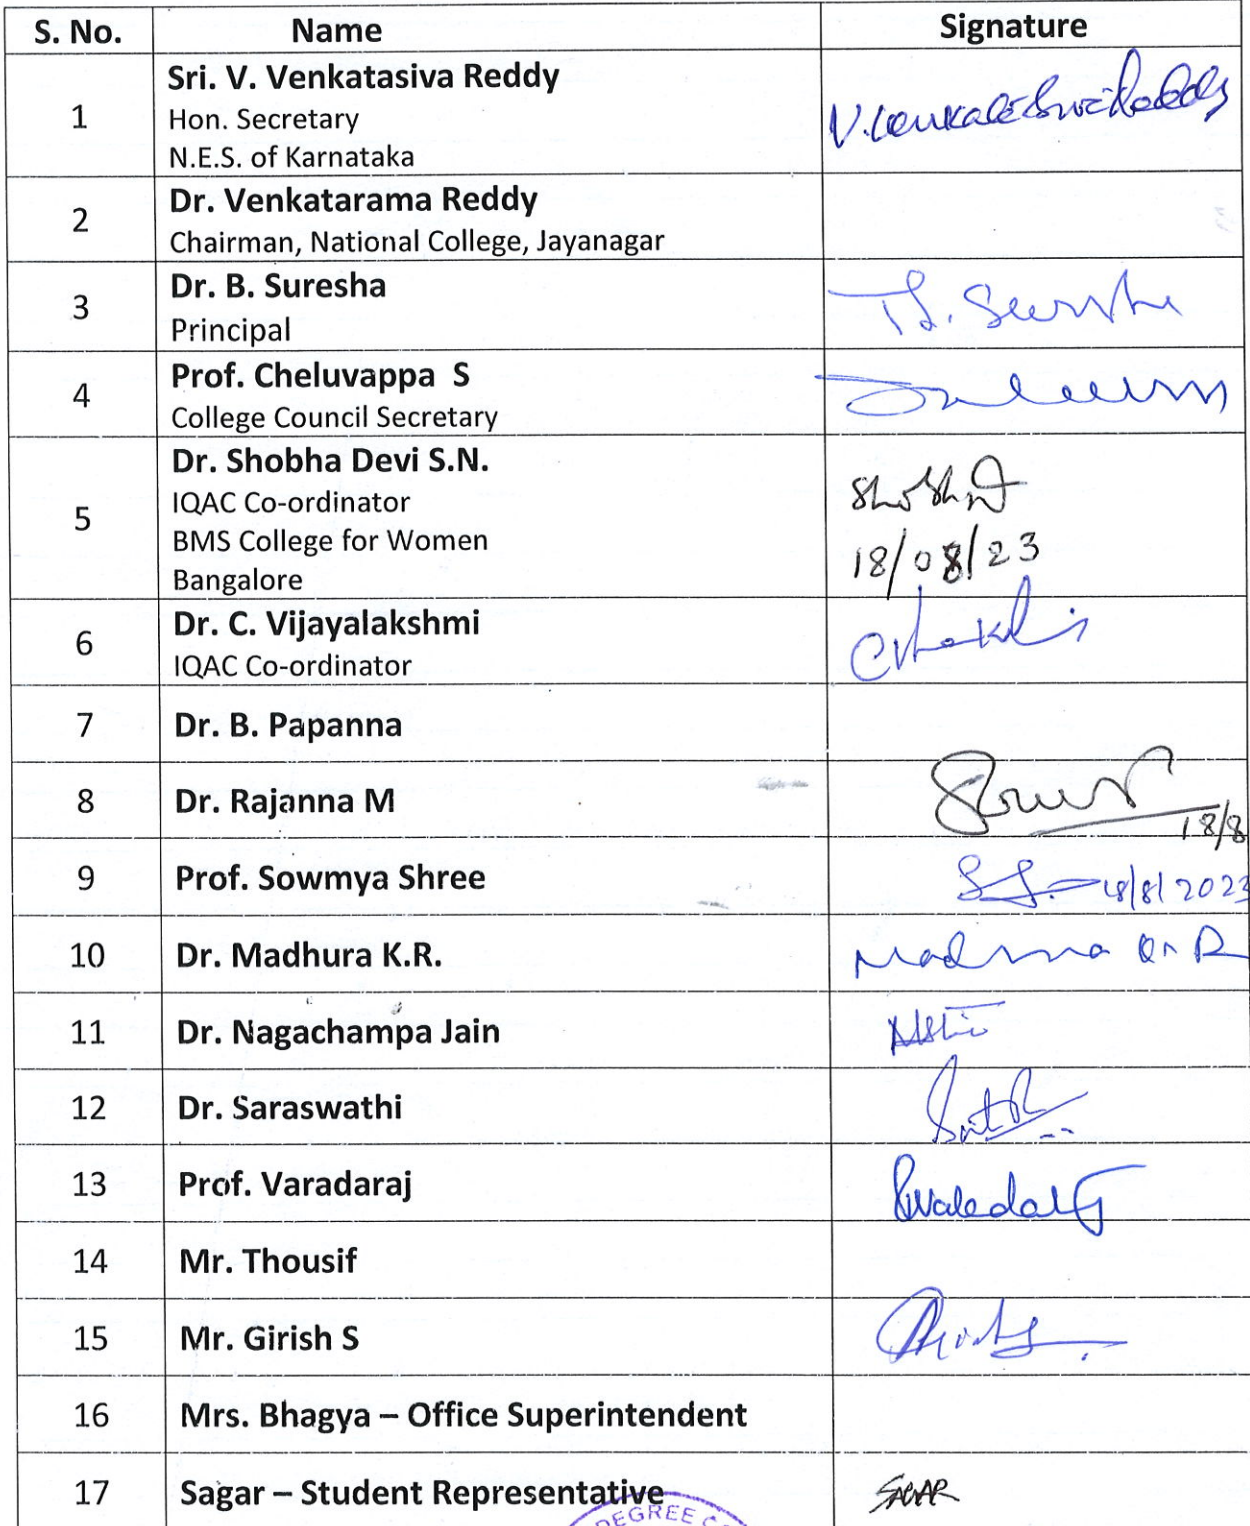 S. No. Name Signature
1 Sri. V. Venkatasiva Reddy
Hon. Secretary
N.E.S. of Karnataka
2 Dr. Venkatarama Reddy
Chairman, National College, Jayanagar
3 Dr. B. Suresha
Principal
4 Prof. Cheluvappa S
College Council Secretary
5 Dr. Shobha Devi S.N.
IQAC Co-ordinator
BMS College for Women
Bangalore
18/08/23
6 Dr. C. Vijayalakshmi
IQAC Co-ordinator
7 Dr. B. Papanna
8 Dr. Rajanna M
18/8
9 Prof. Sowmya Shree 18/8/2023
10 Dr. Madhura K.R.
11 Dr. Nagachampa Jain
12 Dr. Saraswathi
13 Prof. Varadaraj
14 Mr. Thousif
15 Mr. Girish S
16 Mrs. Bhagya – Office Superintendent
17 Sagar – Student Representative SAGAR
DEGREE